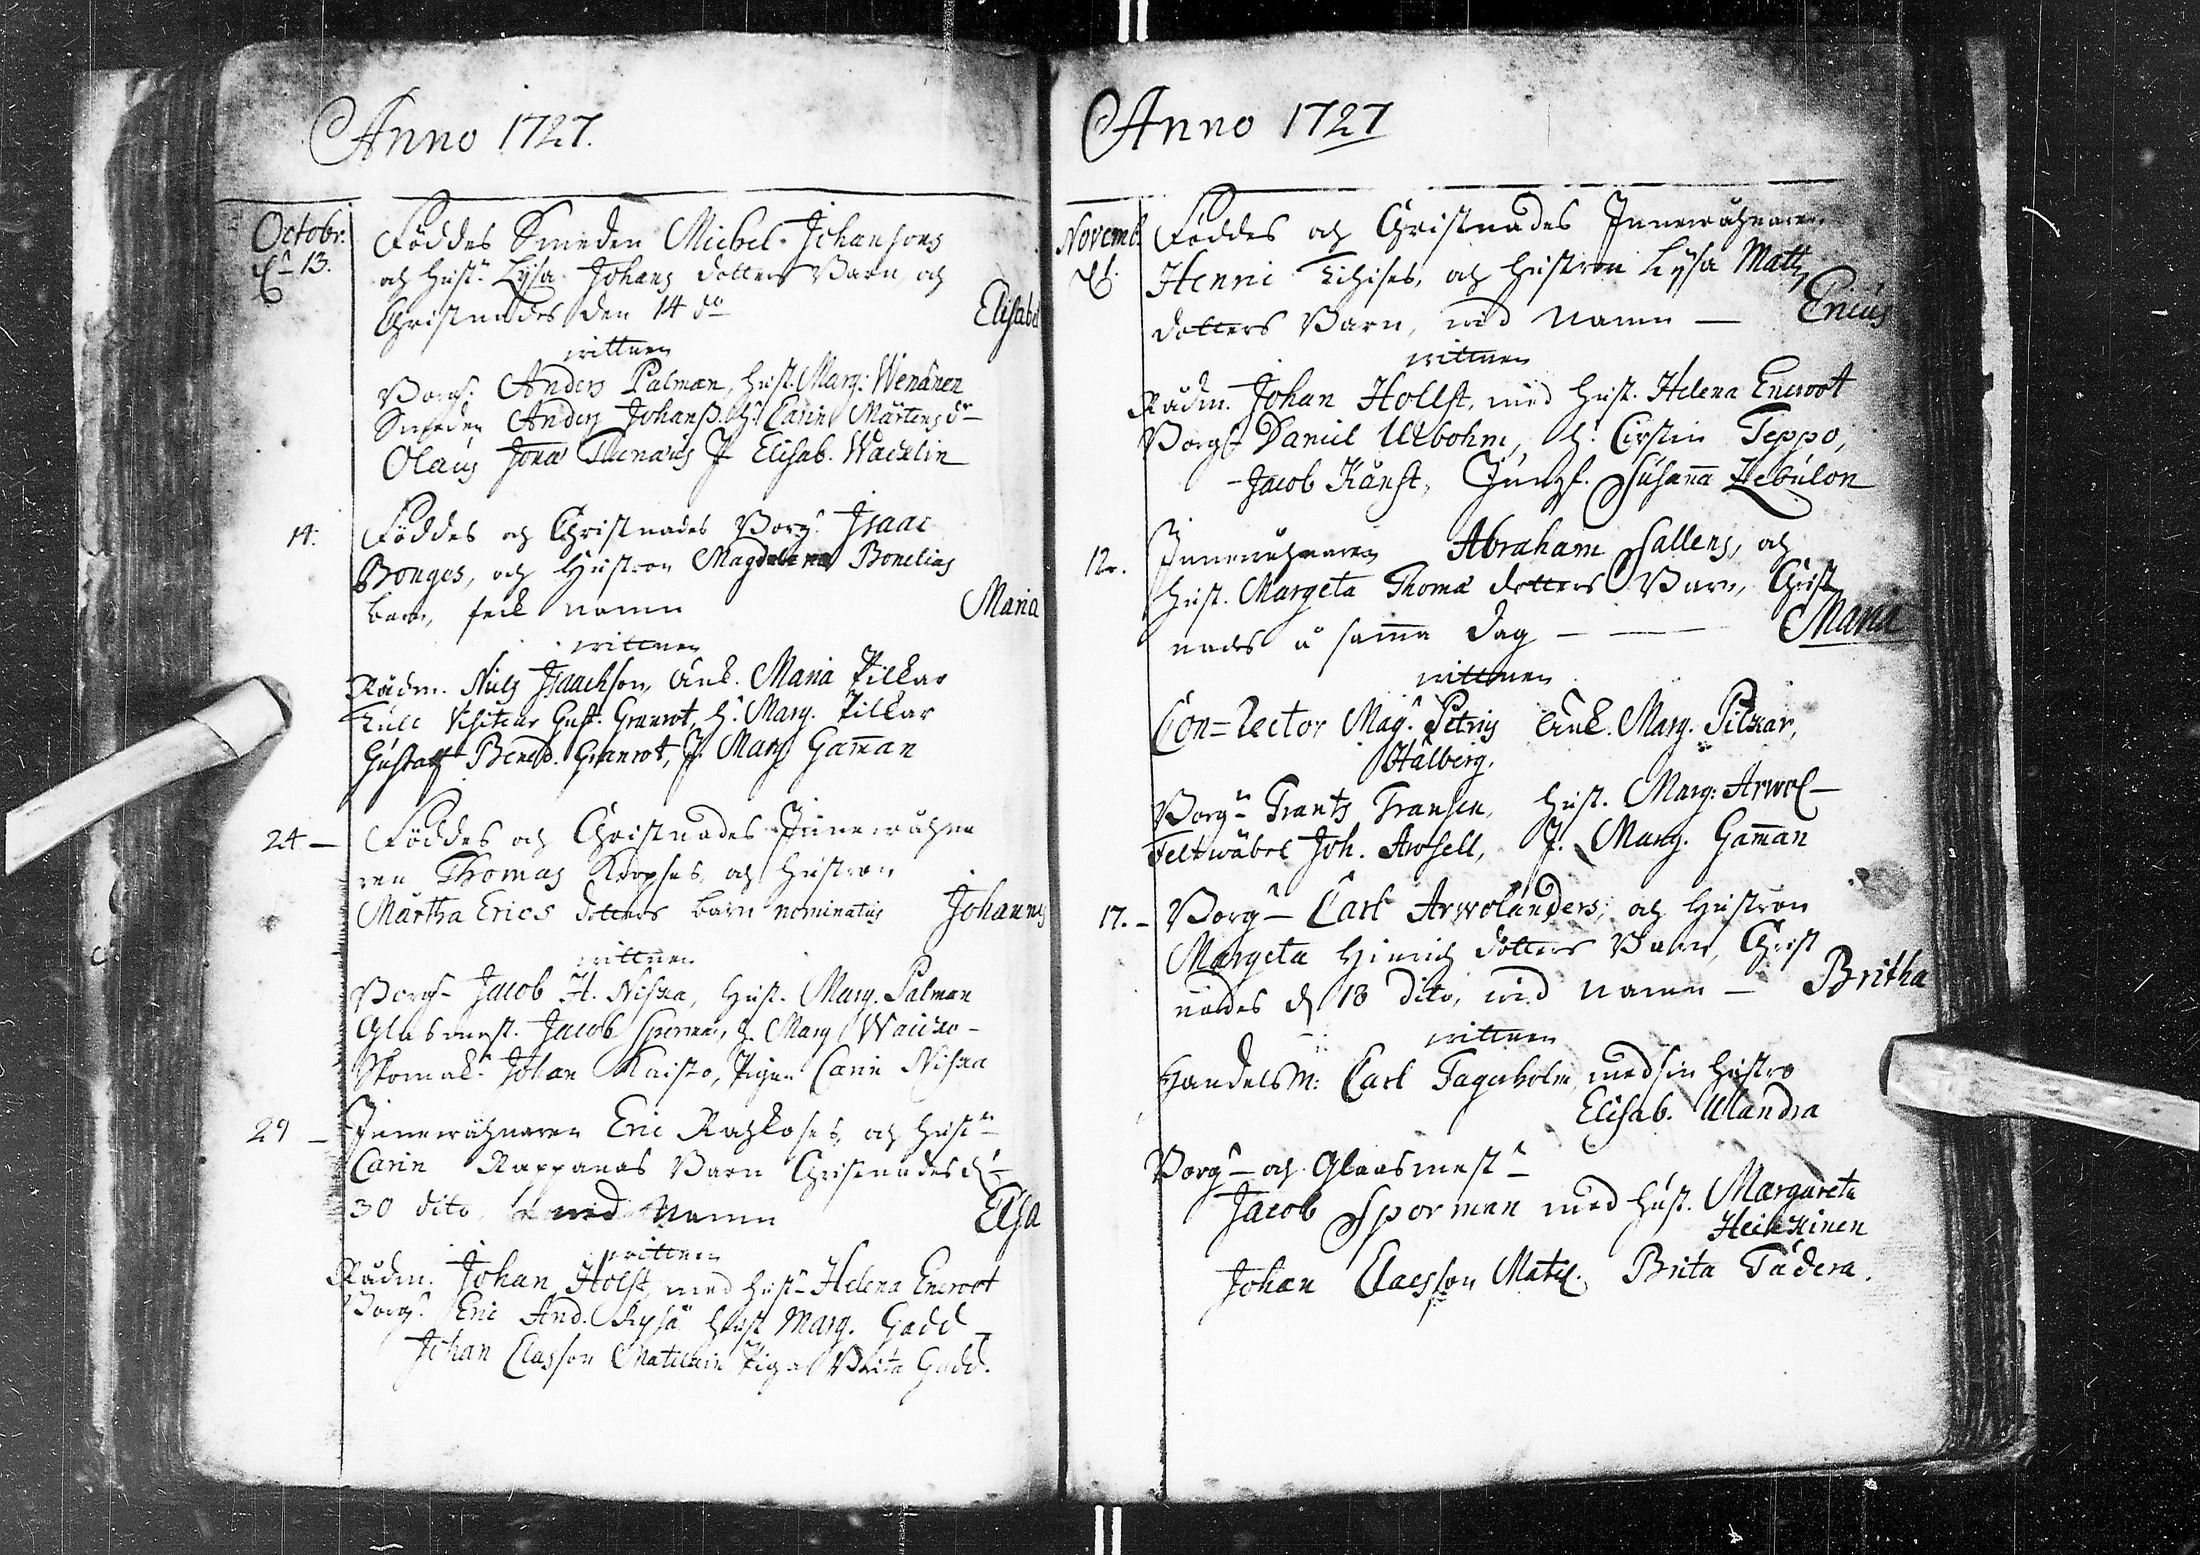 Anno 1727.
Octobr. Föddes Smeden Michel Johansons
d. 13. och Hustr. Lysa Johans dotters Barn och
Christnades den 14 do Elisabet
wittnen
Borg: Anders Palman, Hust. Marg: Wenänen
Smeden Anders Johanss. H. Carin Mårtensdr
Olaus Jonæ Thenaus J. Elisab. Wacklin
14. Föddes och Christnades Borg. Isaac
Bonges, och Hustron Magdalena Bonelius
barn, feck namn Maria
wittnen
Rådm. Nils Isaackson, Enk. Maria Pilkar
Tull Visiteur Gust. Granrot, H. Marg. Pilkar
Gustaf Bened. Granrot, J. Marg. Gaman
24 Föddes och Christnades Innewåhna
ren Thomas Korpses, och Hustron
Märtha Erics dotters barn nominatus Johannes
wittnen
Borg. Jacob H. Niska, Hust. Marg. Palman
Glasmest. Jacob Sporman, H. Marg
Skomak. Johan Kaisto, Pigan Carin Niska
29 Innewåhnaren Eric Rachkoses, och Hust.
Carin Rappanas Barn Christnades d.
30 dito med Namn Elsa
wittnen
Rådm. Johan Holst, med Hust. Helena Eneroot
Borg. Eric And. Hust Marg. Gadd
Johan Classon Pigan Brita Gadd.
Anno 1727
Novemb. Föddes och Christnades Innewåhnaren
Henric och Hustron Lysa Matts
dotters Barn, wid Namn — Ericus
wittnen
Rådm. Johan Hollst, med Hust. Helena Eneroot
Borg. Daniel Ulbohm, H. Cirstin Teppo,
Jacob Kånst, Jungf. Susanna Zebulon
12. Innewåhnaren Abraham Sallens, och
Hust. Margeta Thomæ dotters Barn, Christ
nades å samma dag — Maria
wittnen
Con=Rector Mag. Petrus Enk. Marg. Pilkar,
Stålberg.
Borg. Frants Fransen, Hust. Marg: Arwel
Feltwäbel Joh. J. Marg. Gaman
17. Borg. Carl Arwolanders, och Hustron
Margeta Hinrich dotters Barn, Christ
nades d. 18 dito, wid Namn — Britha
wittnen
Handelsm: Carl Fagerholm, med sin Hustro
Elisab. Ulandra
Borg. och Glasmest.
Jacob Sporman med Hust. Margareta
Heickinen
Johan Claesson Brita Fädera.